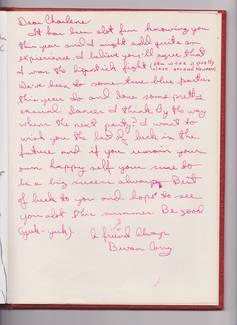 Dear Charlene
It has been alot fun knowing you
this year and I might add quite an
experience. I believe you'll agree that
I won the lipstick fight (the store is pretty
We've been to some true blue parties
this year too and done some pretty
casual dances I think. By the way
where the next party? I want to
wish you the best of luck in the
future and if you remain your
own happy self your sure to
be a big success always. Best
of luck to you and hope to see
you alot this summer. Be good
(yuk-yuk).
A friend Always